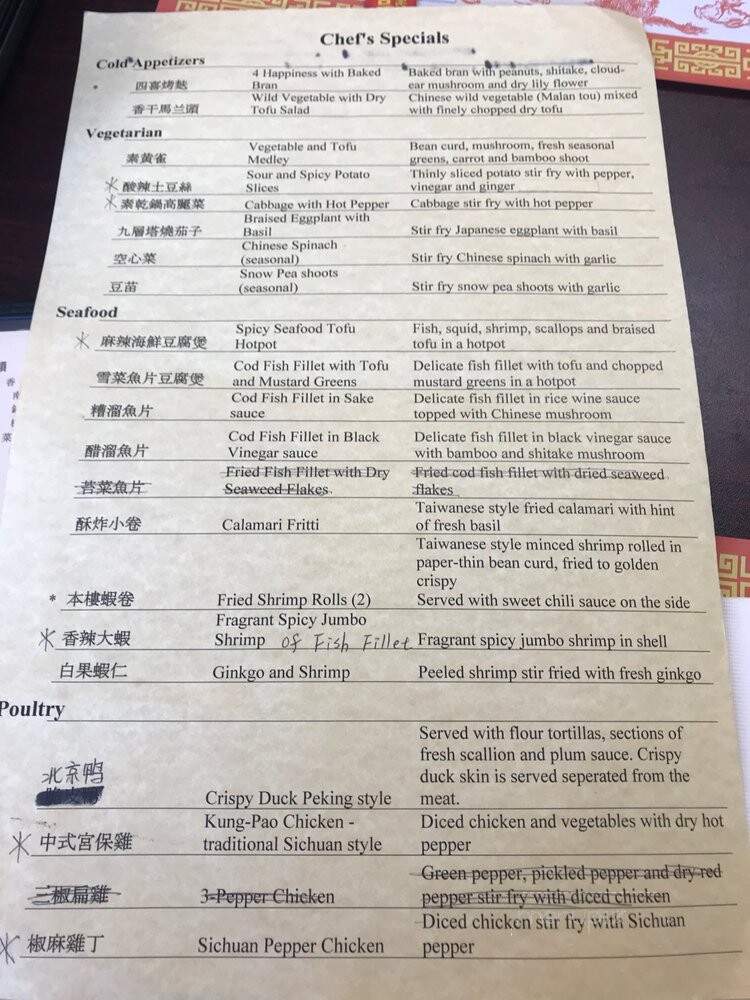 Chef's Specials
Cold Appetizers
四喜烤麩 4 Happiness with Baked Bran Baked bran with peanuts, shitake, cloud-ear mushroom and dry lily flower
香干馬兰頭 Wild Vegetable with Dry Tofu Salad Chinese wild vegetable (Malan tou) mixed with finely chopped dry tofu
Vegetarian
素黃雀 Vegetable and Tofu Medley Bean curd, mushroom, fresh seasonal greens, carrot and bamboo shoot
* 酸辣土豆絲 Sour and Spicy Potato Slices Thinly sliced potato stir fry with pepper, vinegar and ginger
* 素乾鍋高麗菜 Cabbage with Hot Pepper Cabbage stir fry with hot pepper
九層塔燒茄子 Braised Eggplant with Basil Stir fry Japanese eggplant with basil
空心菜 Chinese Spinach (seasonal) Stir fry Chinese spinach with garlic
豆苗 Snow Pea shoots (seasonal) Stir fry snow pea shoots with garlic
Seafood
* 麻辣海鮮豆腐煲 Spicy Seafood Tofu Hotpot Fish, squid, shrimp, scallops and braised tofu in a hotpot
雪菜魚片豆腐煲 Cod Fish Fillet with Tofu and Mustard Greens Delicate fish fillet with tofu and chopped mustard greens in a hotpot
糟溜魚片 Cod Fish Fillet in Sake sauce Delicate fish fillet in rice wine sauce topped with Chinese mushroom
醋溜魚片 Cod Fish Fillet in Black Vinegar sauce Delicate fish fillet in black vinegar sauce with bamboo and shitake mushroom
苔菜魚片 Fried Fish Fillet with Dry Seaweed Flakes Fried cod fish fillet with dried seaweed flakes
酥炸小卷 Calamari Fritti Taiwanese style fried calamari with hint of fresh basil
* 本樓蝦卷 Fried Shrimp Rolls (2) Taiwanese style minced shrimp rolled in paper-thin bean curd, fried to golden crispy Served with sweet chili sauce on the side
* 香辣大蝦 Fragrant Spicy Jumbo Shrimp or Fish Fillet Fragrant spicy jumbo shrimp in shell
白果蝦仁 Ginkgo and Shrimp Peeled shrimp stir fried with fresh ginkgo
Poultry
北京鸭 Crispy Duck Peking style Served with flour tortillas, sections of fresh scallion and plum sauce. Crispy duck skin is served seperated from the meat.
* 中式宮保雞 Kung-Pao Chicken - traditional Sichuan style Diced chicken and vegetables with dry hot pepper
三椒扁雞 3-Pepper Chicken Green pepper, pickled pepper and dry red pepper stir fry with diced chicken
* 椒麻雞丁 Sichuan Pepper Chicken Diced chicken stir fry with Sichuan pepper